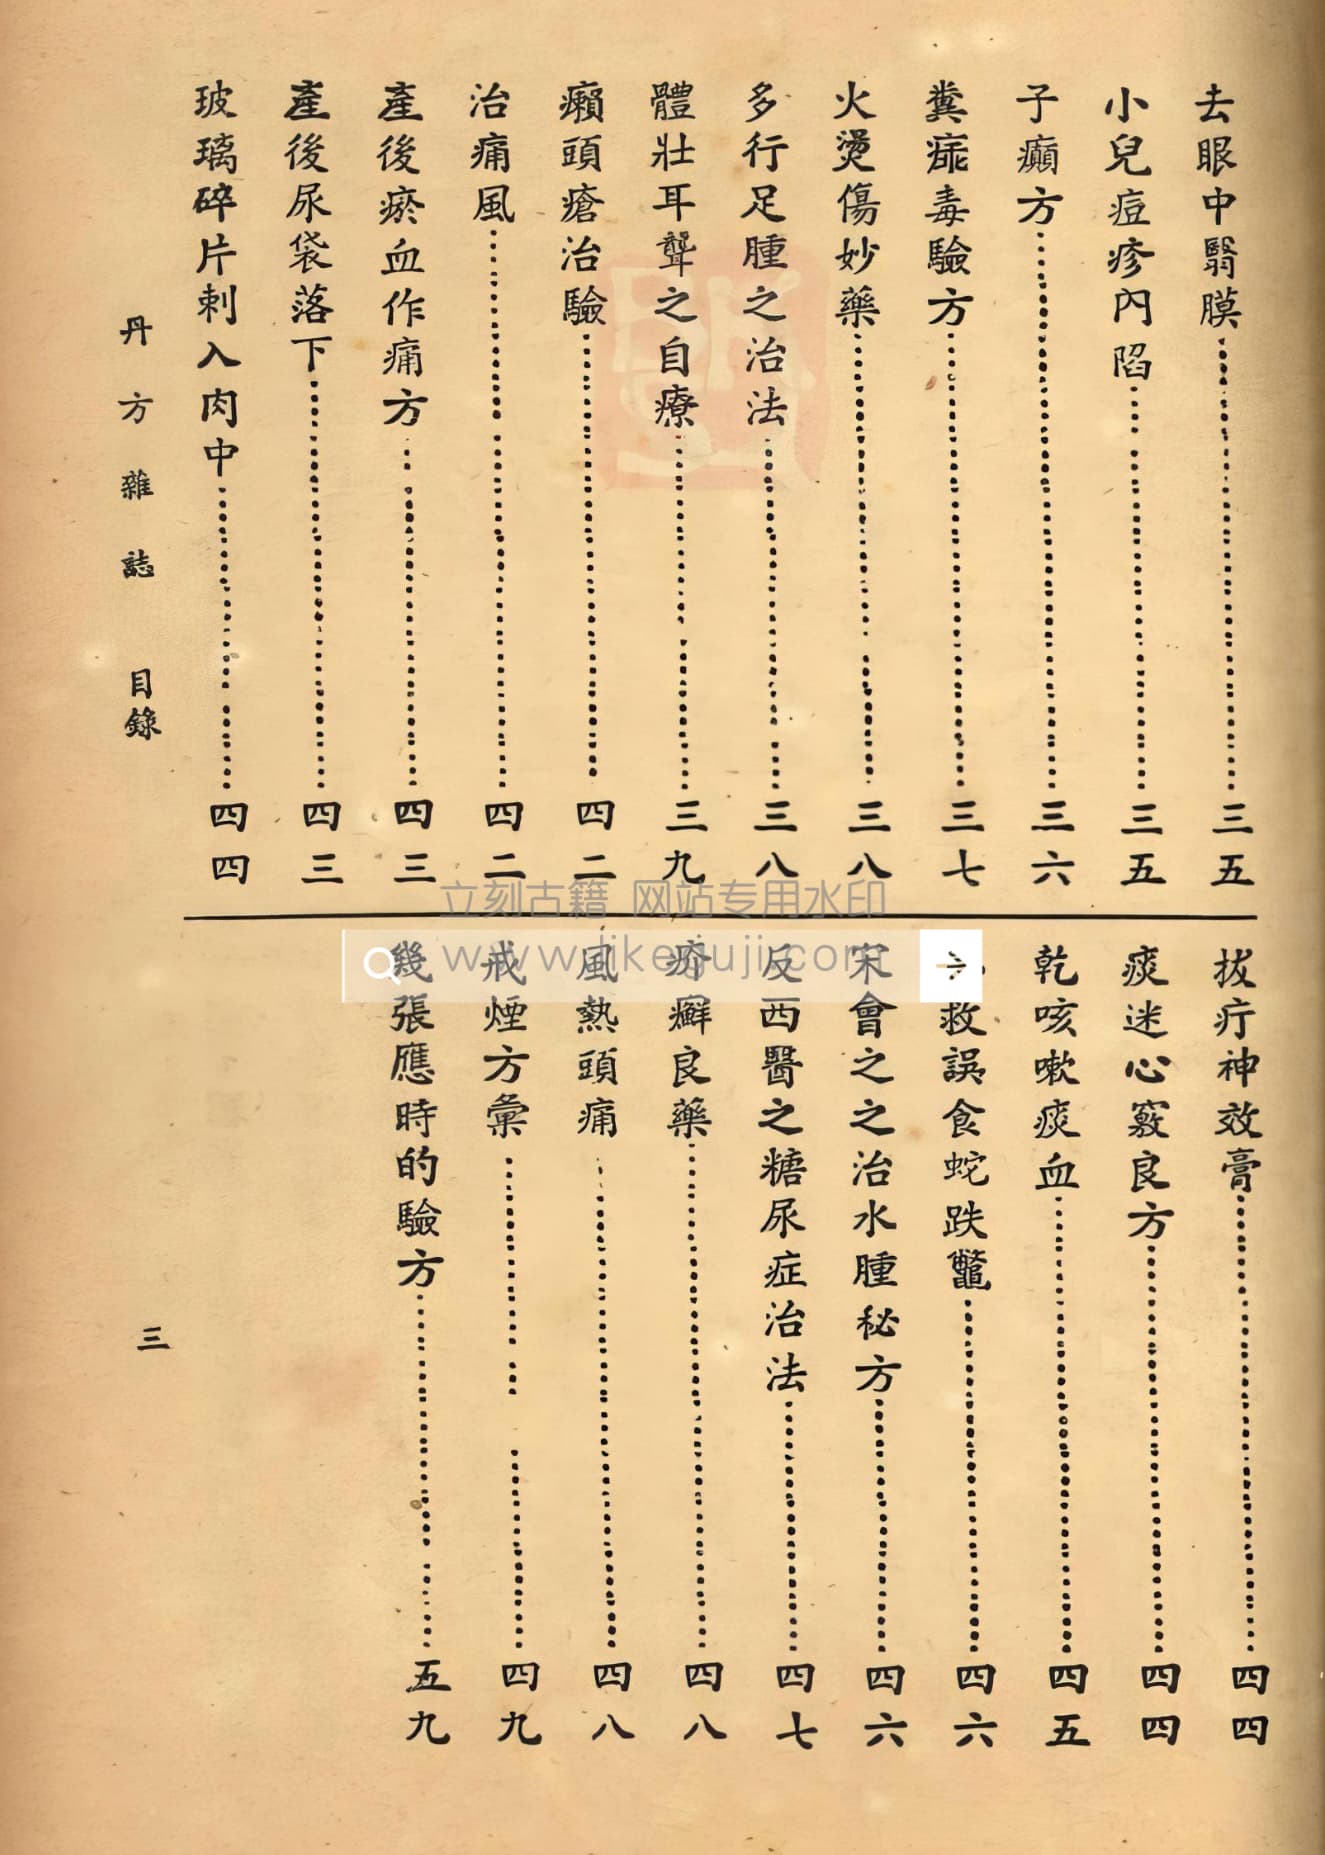 去眼中翳膜……三五
小兒痘疹內陷……三五
子癲方……三六
糞痱毒驗方……三七
火燙傷妙藥……三八
多行足腫之治法……三八
體壯耳聾之自療……三九
癩頭瘡治驗……四二
治痛風……四二
產後瘀血作痛方……四三
產後尿袋落下……四三
玻璃碎片刺入肉中……四四
拔疔神效膏……四四
痰迷心竅良方……四四
乾咳嗽痰血……四五
救誤食蛇跌鼈……四六
宋會之之治水腫秘方……四六
反西醫之糖尿症治法……四七
疥癬良藥……四八
風熱頭痛……四八
戒煙方彙……四九
幾張應時的驗方……五九
丹方雜誌 目錄
三
立刻古籍 网站专用水印
www.likeguji.com